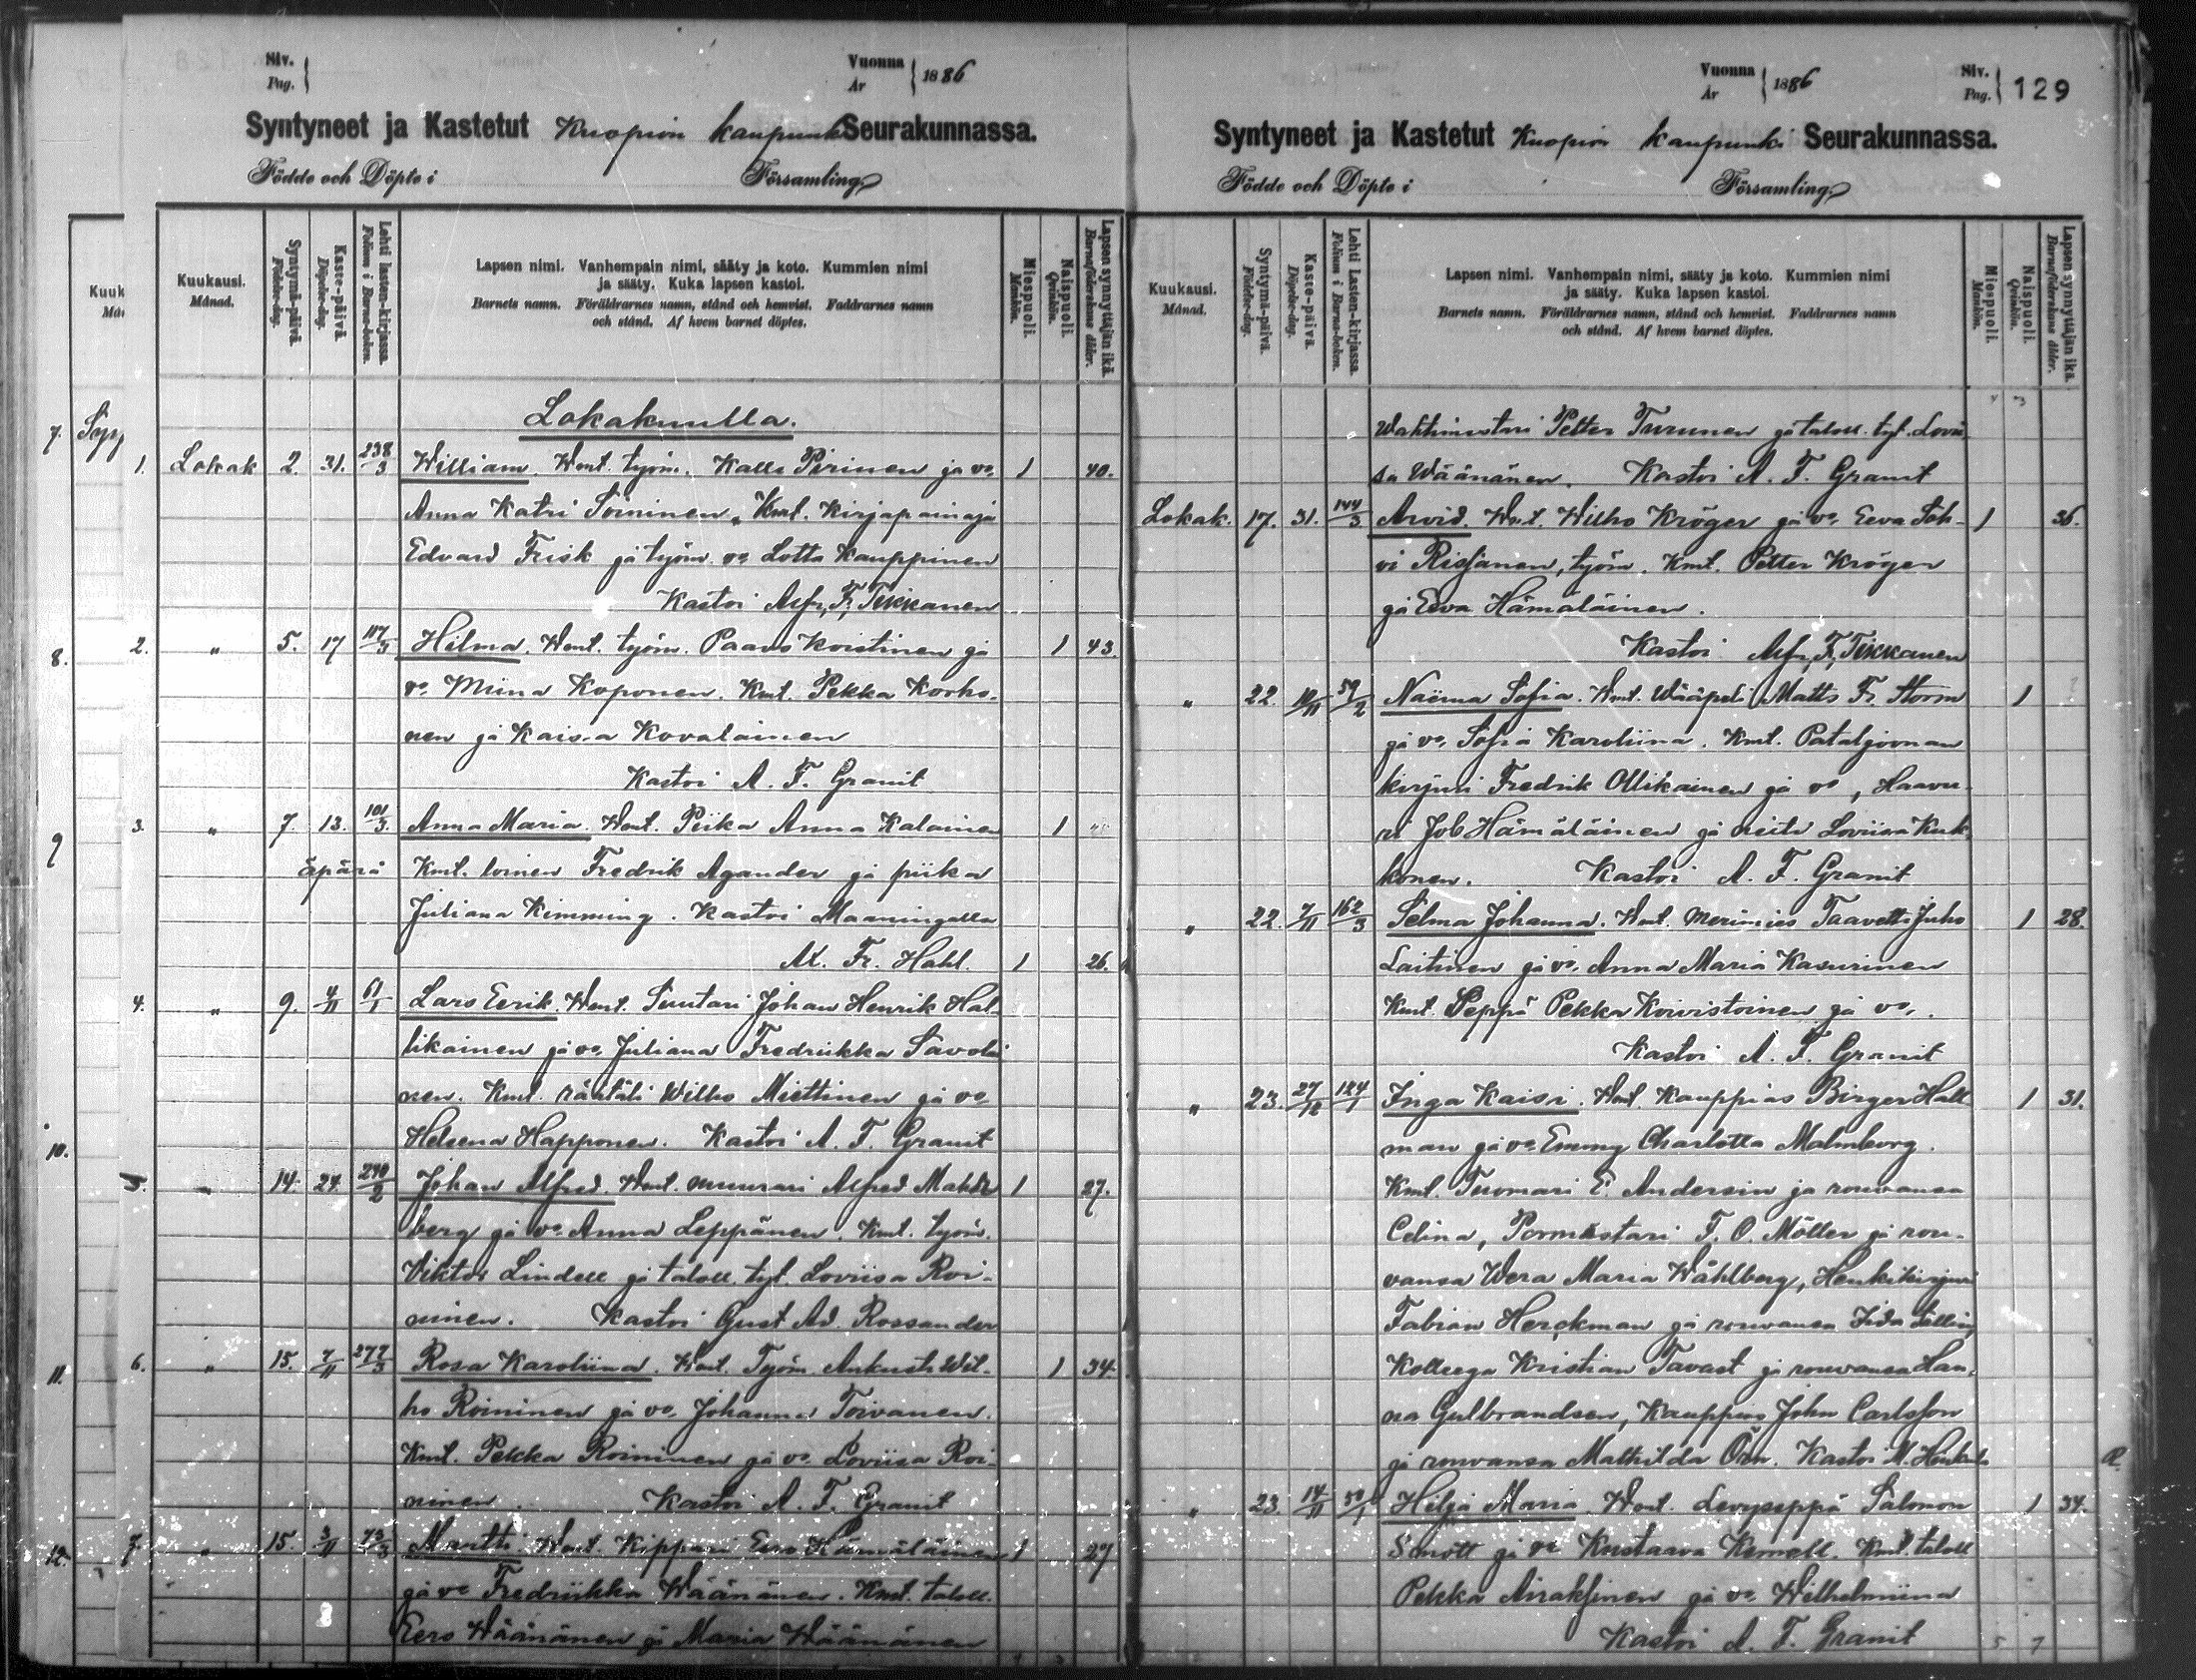 Siv.
Pag.
Vuonna
År
1886
Syntyneet ja Kastetut Kuopion kaupunki Seurakunnassa.
Födde och Döpte i Församling
Kuukausi.
Månad.
Syntymä-päivä.
Födelse-dag.
Kaste-päivä.
Döpelse-dag.
Lehti lasten-kirjassa.
Folium i Barna-boken.
Lapsen nimi. Vanhempain nimi, sääty ja koto. Kummien nimi
ja sääty. Kuka lapsen kastoi.
Barnets namn. Föräldrarnes namn, stånd och hemvist. Faddrarnes namn
och stånd. Af hvem barnet döptes.
Miespuoli.
Mankön.
Naispuoli.
Qvinkön.
Lapsen synnyttäjän ikä.
Barnaföderskans ålder.
Lokakuulla.
1. Lokak 2. 31. 238/3 William. Wmt. työm. Kalle Pirinen ja vo. 1 40.
Anna Katri Soininen. Kmt. Kirjapainaja
Edvard Frisk ja työm. vo Lotta Kauppinen
Kastoi Alfr. F. Tikkanen
2. " 5. 17 117/3 Hilma. Wmt. työm. Paavo Koistinen ja 1 43.
vo. Miina Koponen. Kmt. Pekka Korho-
nen ja Kaisa Kovalainen
Kastoi A. F. Granit
3. " 7. 13. 101/3 Anna Maria. Wmt. Piika Anna Kalainen 1
äpärä Kmt. loinen Fredrik Agander ja piika
Juliana Kimming. Kastoi Maaningalla
Al. Fr. Hahl. 1 26.
4. " 9. 4/11 61/1 Lars Eerik. Wmt. Suutari Johan Henrik Hal-
likainen ja vo. Juliana Fredriikka Savolai
nen. Kmt. räätäli Wilho Miettinen ja vo.
Helena Happonen. Kastoi A. F. Granit
5. " 14. 24. 290/2 Johan Alfred. Wmt. muurari Alfred Mahl 1 27.
berg ja vo. Anna Leppänen. Kmt. työm.
Viktor Lindell ja taloll. tyt. Loviisa Roi-
ninen. Kastoi Gust. Ad. Rossander
6. " 15. 7/11 277/3 Rosa Karoliina. Wmt. Työm. Aukusti Wil- 1 34.
ho Roininen ja vo. Johanna Toivanen.
Kmt. Pekka Roininen ja vo. Loviisa Roi-
ninen. Kastoi A. F. Granit
7. " 15. 3/11 73/3 Martti. Wmt. Kippari Eero Hämäläinen 1 27
ja vo Fredriikka Wäänänen. Kmt. taloll.
Eero Wäänänen ja Maria Wäänänen
Vuonna
År
1886
Siv.
Pag.
129
Syntyneet ja Kastetut Kuopion kaupunki Seurakunnassa.
Födde och Döpte i Församling
Kuukausi.
Månad.
Syntymä-päivä.
Födelse-dag.
Kaste-päivä.
Döpelse-dag.
Lehti Lasten-kirjassa.
Folium i Barna-boken.
Lapsen nimi. Vanhempain nimi, sääty ja koto. Kummien nimi
ja sääty. Kuka lapsen kastoi.
Barnets namn. Föräldrarnes namn, stånd och hemvist. Faddrarnes namn
och stånd. Af hvem barnet döptes.
Miespuoli.
Mankön.
Naispuoli.
Qvinkön.
Lapsen synnyttäjän ikä.
Barnaföderskans ålder.
Wahtimestari Petter Turunen ja taloll. tyt. Lovii
sa Wäänänen. Kastoi A. F. Granit
Lokak. 17. 31. 144/3 Arvid. Wmt. Wilho Kröger ja vo. Eeva Soh- 1 36.
vi Rissanen, työm. Kmt. Petter Kröger
ja Eeva Hämäläinen.
Kastoi Alfr. F. Tikkanen
" 22. 10/11 59/2 Naëma Sofia. Wmt. Wääpeli Matts Fr. Storm 1
ja vo. Sofia Karoliina. Kmt. Pataljoonan
kirjuri Fredrik Ollikainen ja vo, Haavu-
ri Job Hämäläinen ja neito Loviisa Kuk-
konen. Kastoi A. F. Granit
" 22. 7/11 162/3 Selma Johanna. Wmt. Merimies Taavetti Juho 1 28.
Laitinen ja vo. Anna Maria Kasurinen
Kmt. Seppä Pekka Koivistoinen ja vo.
Kastoi A. F. Granit
" 23. 27/12 124/1 Inga Kaisi. Wmt. Kauppias Birger Hall- 1 31.
man ja vo Emmy Charlotta Malmborg.
Kmt. Tuomari E. Andersin ja rouvansa
Celina, Pormestari F. O. Möller ja rou-
vansa Wera Maria Wåhlberg, Henkikirjuri
Fabian Herckman ja rouvansa Iida
Kolleega Kristian Tavast ja rouvansa Han-
na Gulbrandsen, Kauppias John Carlsson
ja rouvansa Mathilda Örn. Kastoi
" 23. 14/11 50/1 Helja Maria. Wmt. Levyseppä Salomon 1 34.
Smott ja vo Kustaava Kemell. Kmt. taloll
Pekka Airaksinen ja vo. Wilhelmiina
Kastoi A. F. Granit
5 7